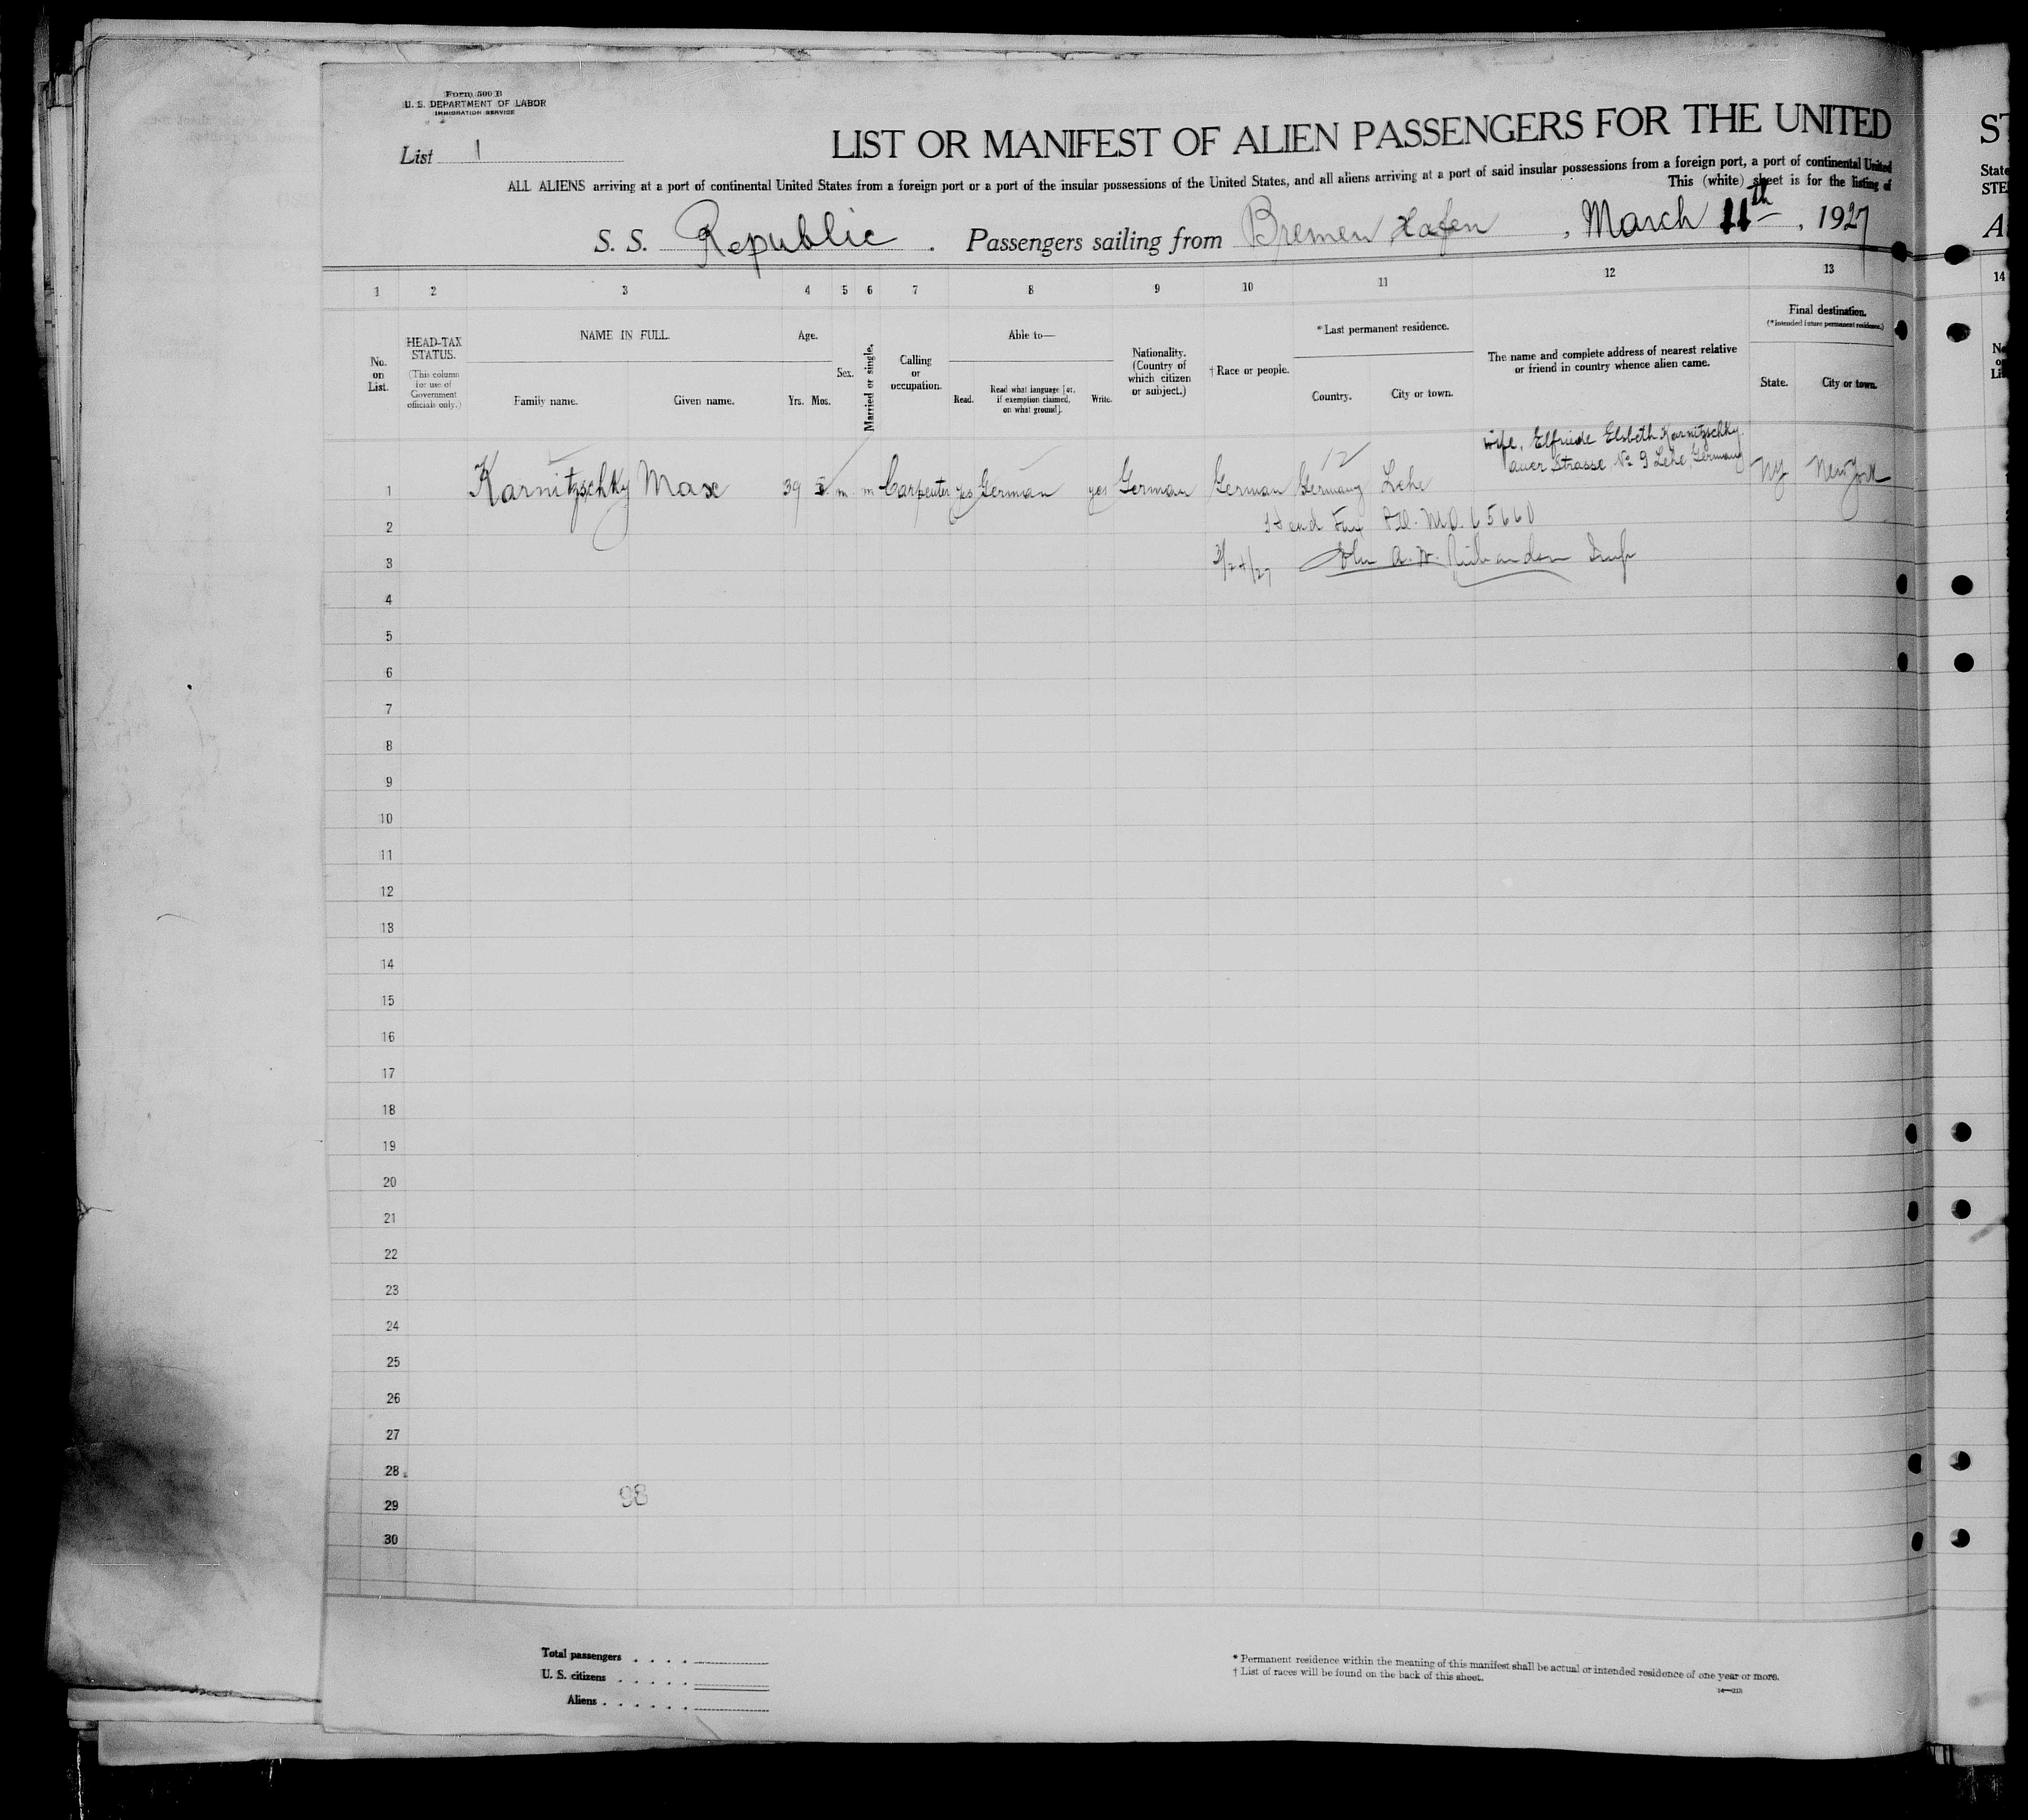 Form 500 B
U. S. DEPARTMENT OF LABOR
IMMIGRATION SERVICE
List 1
LIST OR MANIFEST OF ALIEN PASSENGERS FOR THE UNITED
ALL ALIENS arriving at a port of continental United States from a foreign port or a port of the insular possessions of the United States, and all aliens arriving at a port of said insular possessions from a foreign port, a port of continental United
This (white) sheet is for the listing of
S. S. Republic . Passengers sailing from Bremen Hafen , March 11th , 1927
1 2 3 4 5 6 7 8 9 10 11 12 13
No. on List.
HEAD-TAX STATUS.
(This column for use of Government officials only.)
NAME IN FULL.
Family name. Given name.
Age.
Yrs. Mos.
Sex.
Married or single.
Calling or occupation.
Able to—
Read. Read what language [or, if exemption claimed, on what ground]. Write.
Nationality. (Country of which citizen or subject.)
† Race or people.
* Last permanent residence.
Country. City or town.
The name and complete address of nearest relative or friend in country whence alien came.
Final destination.
(* Intended future permanent residence.)
State. City or town.
12
wife, Elfriede Elsbeth Karnitzschky
auer Strasse, No 9 Lehe, Germany
1 Karnitzschky Max 39 m m Carpenter yes German yes German German Germany Lehe NY New York
2 Head Tax M.O. 65660
3 3/24/27 John A. W. Richardson Insp
4
5
6
7
8
9
10
11
12
13
14
15
16
17
18
19
20
21
22
23
24
25
26
27
28
29
30
98
Total passengers
U. S. citizens
Aliens
* Permanent residence within the meaning of this manifest shall be actual or intended residence of one year or more.
† List of races will be found on the back of this sheet.
ST
State
STE
A
14